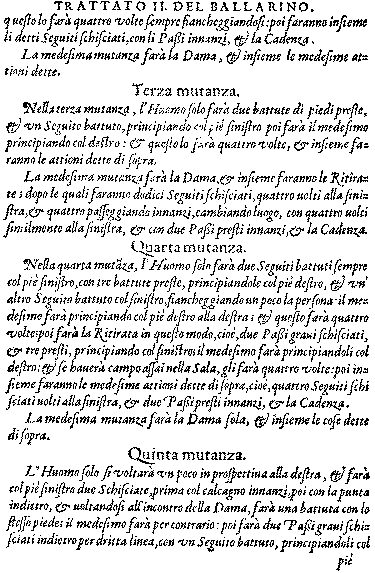 TRATTATO II. DEL BALLARINO.
questo lo farà quattro volte sempre fiancheggiandosi: poi faranno insieme
li detti Seguiti schisciati, con li Passi innanzi, & la Cadenza.
La medesima mutanza farà la Dama, & insieme le medesime at-
tioni dette.
Terza mutanza.
Nella terza mutanza, l'Huomo solo farà due battute di piedi preste,
& vn Seguito battuto, principiando col piè sinistro poi farà il medesimo
principiando col destro: & questo lo farà quattro volte, & insieme fa-
ranno le attioni dette di sopra.
La medesima mutanza farà la Dama, & insieme faranno le Ritira-
te: dopo le quali faranno dodici Seguiti schisciati, quattro uolti alla sini-
stra, & quattro passeggiando innanzi, cambiando luogo, con quattro uolti
similmente alla sinistra, & con due Passi presti innanzi, & la Cadenza.
Quarta mutanza.
Nella quarta mutãza, l'Huomo solo farà due Seguiti battuti sempre
col piè sinistro, con tre battute preste, principiandole col piè destro, & vn'
altro Seguito battuto col sinistro, fiancheggiando un poco la persona: il me-
desimo farà principiando col piè destro alla destra: & questo farà quattro
volte: poi farà la Ritirata in questo modo, cioè, due Passi graui schisciati,
& tre presti, principiando col sinistro: il medesimo farà principiandoli col
destro: & se hauerà campo assai nella Sala, gli farà quattro volte: poi in-
sieme faranno le medesime attioni dette di sopra, cioè, quattro Seguiti schi
sciati uolti alla sinistra, & due Passi presti innanzi, & la Cadenza.
La medesima mutanza farà la Dama sola, & insieme le cose dette
di sopra.
Quinta mutanza.
L'Huomo solo si voltarà vn poco in prospettiua alla destra, & farà
col piè sinistro due Schisciate, prima col calcagno innanzi, poi con la punta
indietro, & uoltandosi all'incontro della Dama, farà una battuta con lo
stesso piede: il medesimo farà per contrario: poi farà due Passi graui schi
sciati indietro per dritta linea, con vn Seguito battuto, principiandoli col
piè